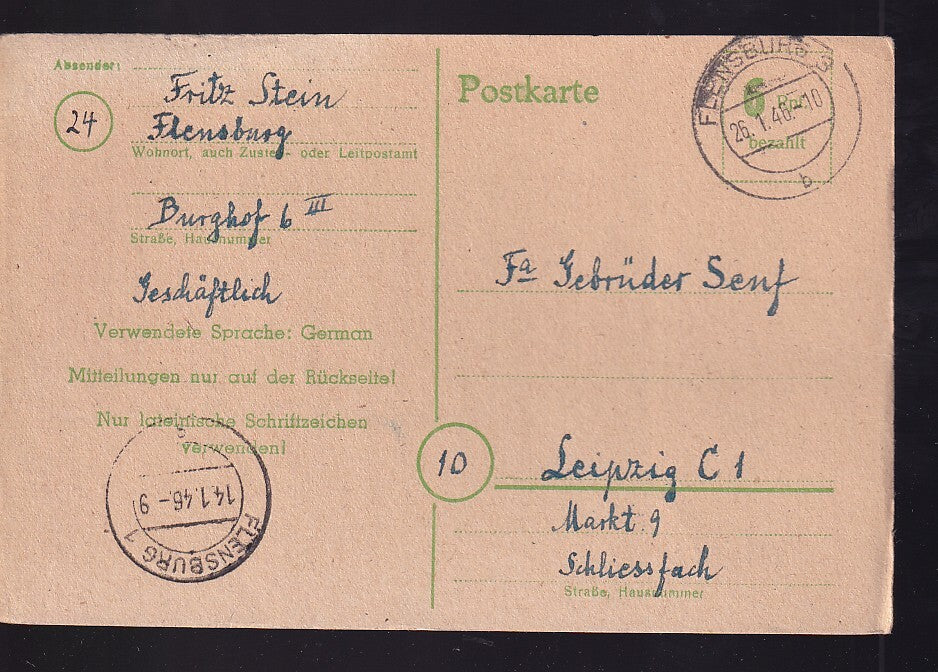 Absender:
Fritz Stein
24
Flensburg
Wohnort, auch Zustell- oder Leitpostamt
Burghof 6 III
Straße, Hausnummer
Geschäftlich
Verwendete Sprache: German
Mitteilungen nur auf der Rückseite!
Nur lateinische Schriftzeichen
verwenden!
14.1.46-9
FLENSBURG 1
Postkarte
6 Rpf
bezahlt
FLENSBURG 3
26.1.46.-10
b
Fa Gebrüder Senf
10
Leipzig C 1
Markt 9
Schliessfach
Straße, Hausnummer